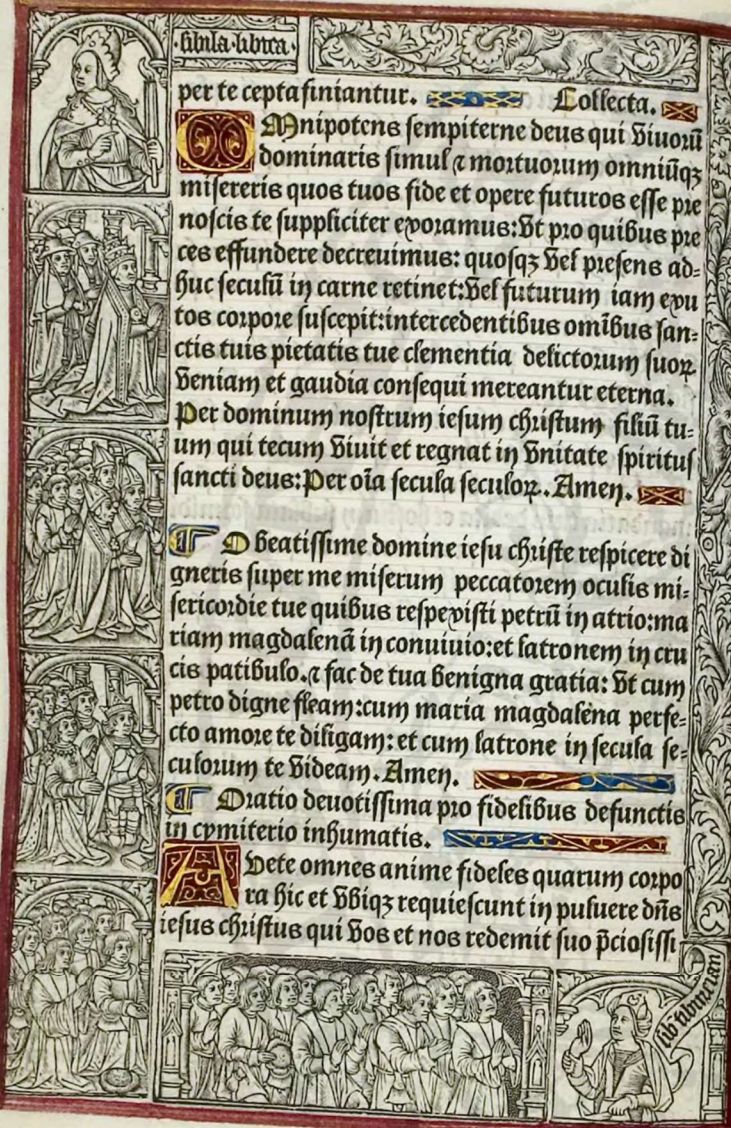 ·sibila·libica·
per te cepta finiantur. Collecta.
OMnipotens sempiterne deus qui viuorũ
dominaris simul ⁊ mortuorum omniũqꝫ
misereris quos tuos fide et opere futuros esse pre
noscis te suppliciter exoramus:vt pro quibus pre
ces effundere decreuimus: quosqꝫ vel presens ad=
huc seculũ in carne retinet:vel futurum iam exu
tos corpore suscepit:intercedentibus omĩbus san=
ctis tuis pietatis tue clementia delictorum suoꝝ
veniam et gaudia consequi mereantur eterna.
Per dominum nostrum iesum christum filiũ tu=
um qui tecum viuit et regnat in vnitate spiritus
sancti deus:Per oĩa secula seculoꝝ. Amen.
¶ O beatissime domine iesu christe respicere di
gneris super me miserum peccatorem oculis mi=
sericordie tue quibus respexisti petrũ in atrio:ma
riam magdalenã in conuiuio:et latronem in cru
cis patibulo.⁊ fac de tua benigna gratia: vt cum
petro digne fleam:cum maria magdalena perfe=
cto amore te diligam: et cum latrone in secula se=
culorum te videam.Amen.
¶ Oratio deuotissima pro fidelibus defunctis
in cymiterio inhumatis.
AVete omnes anime fideles quarum corpo
ra hic et vbiqꝫ requiescunt in puluere dñs
iesus christus qui vos et nos redemit suo p̃ciosissi
sib